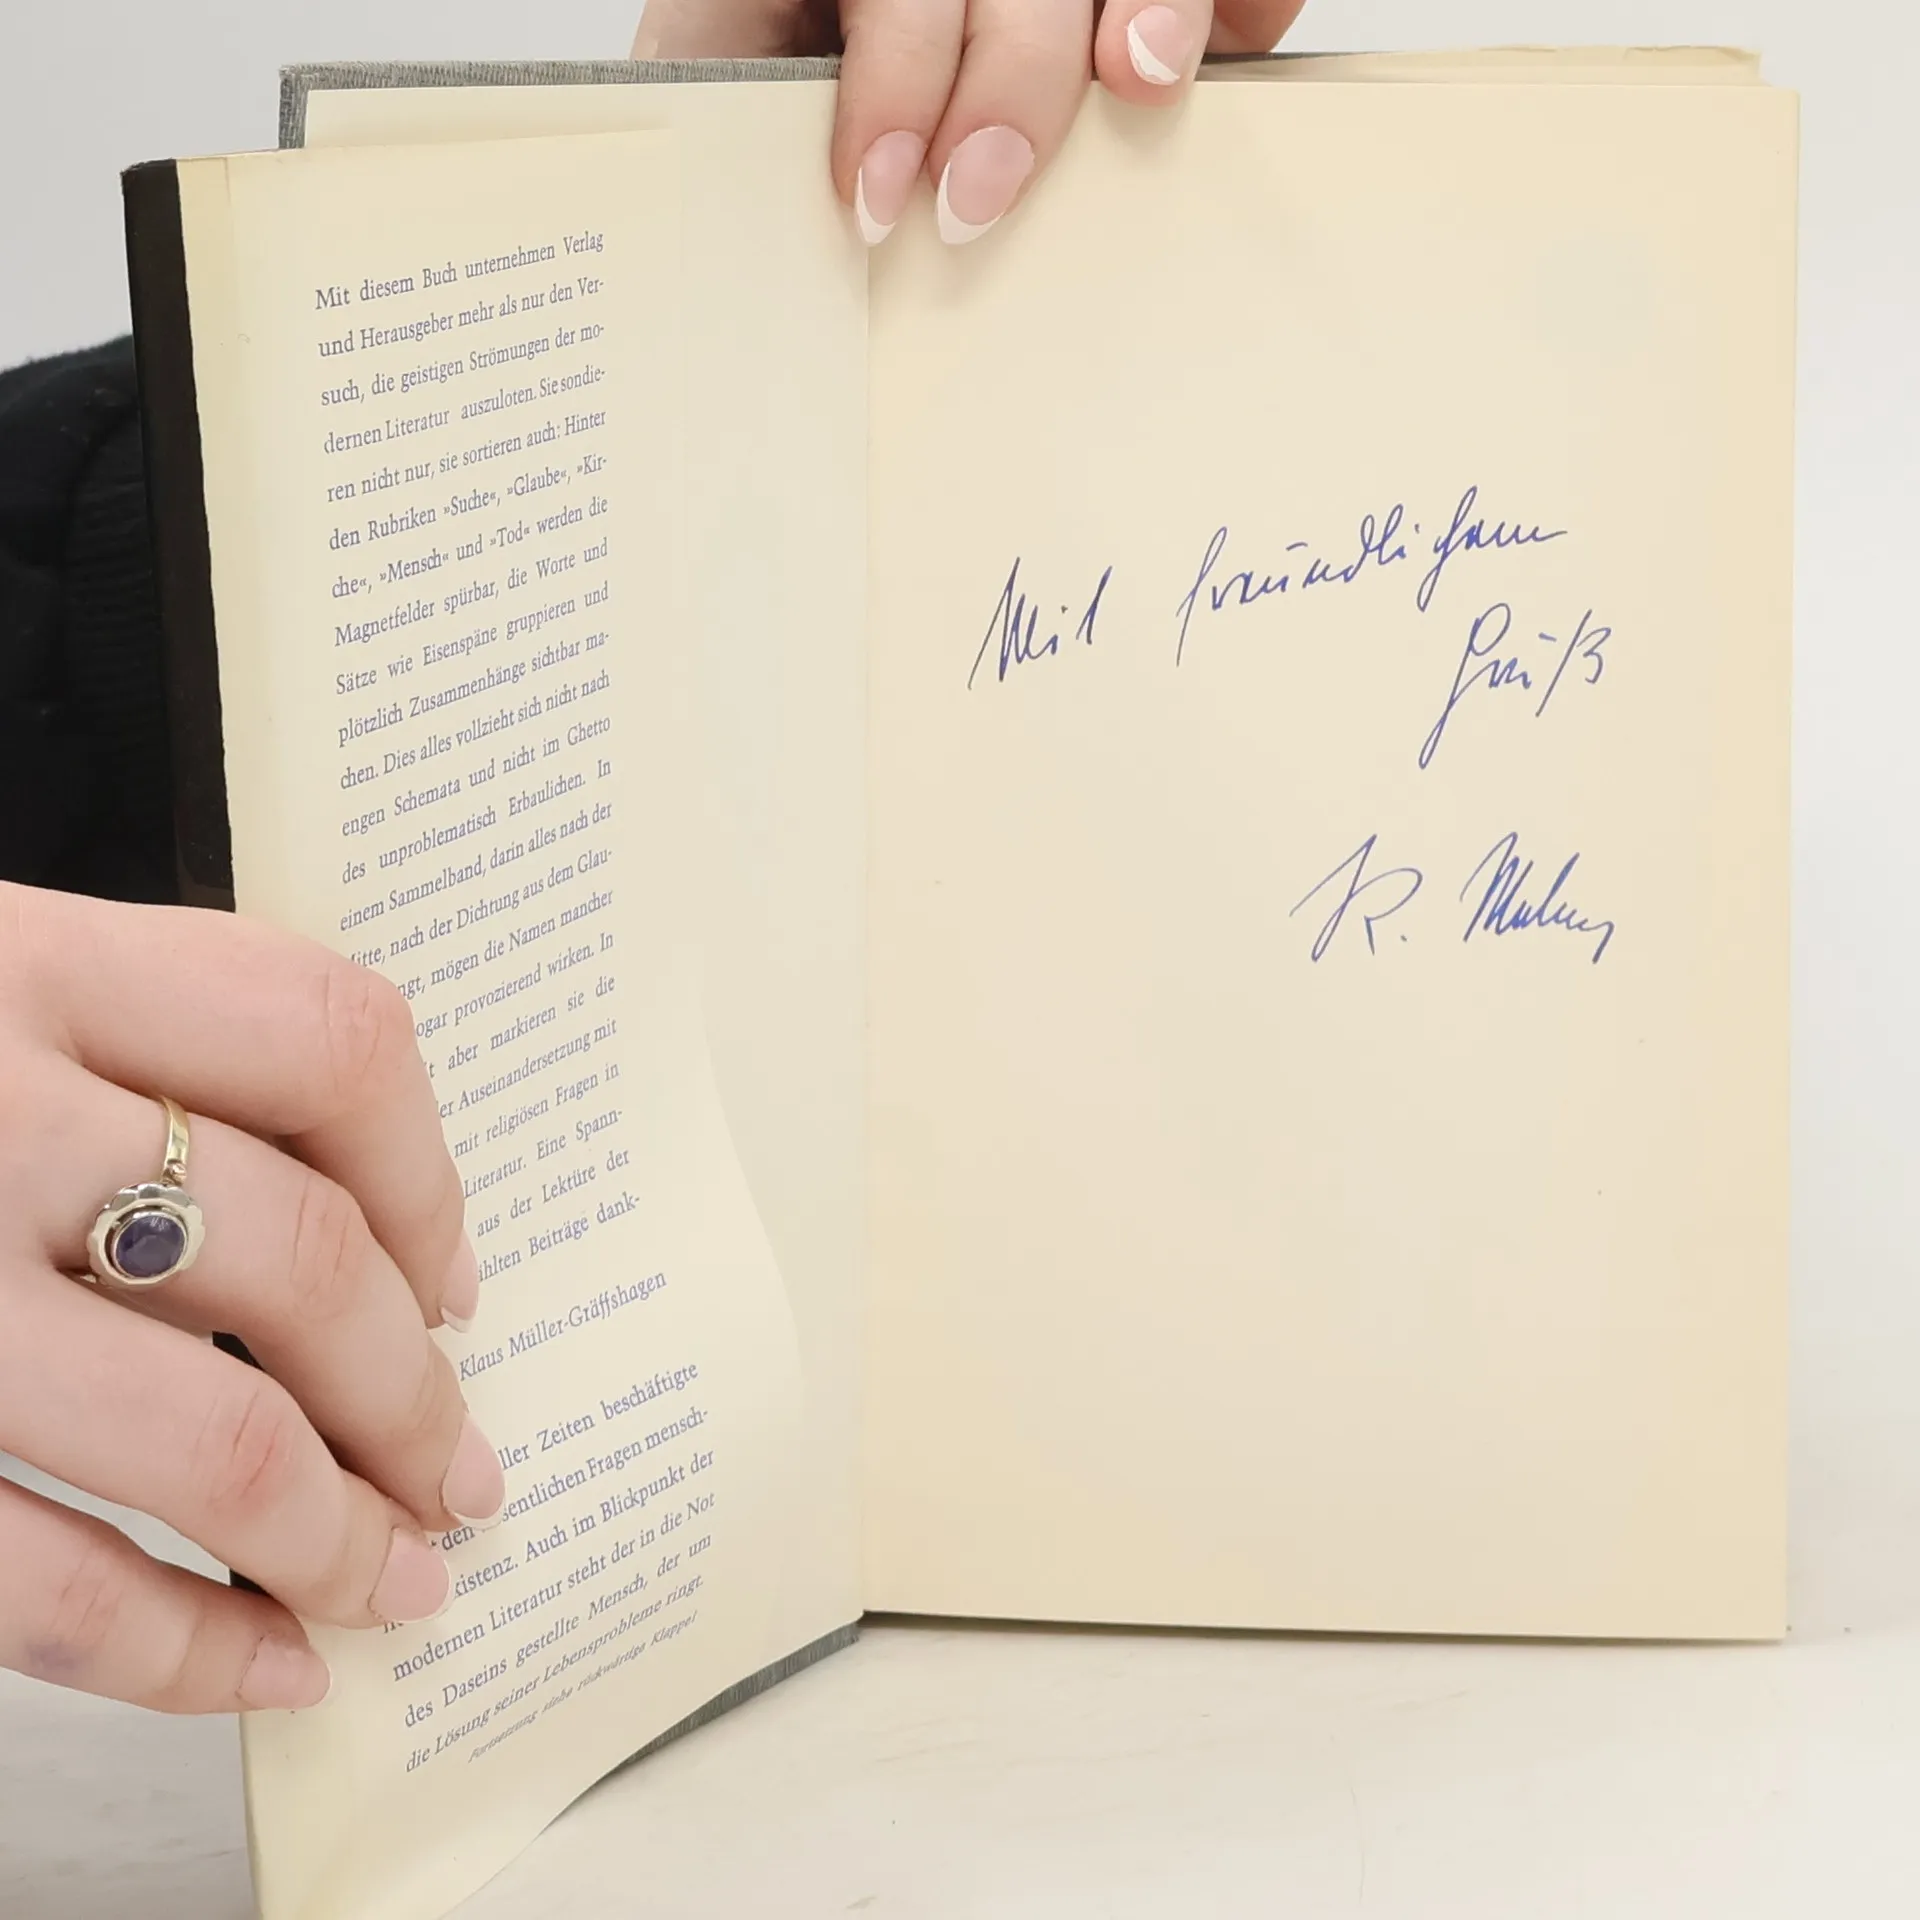 Mit diesem Buch unternehmen Verlag
und Herausgeber mehr als nur den Ver-
such, die geistigen Strömungen der mo-
dernen Literatur auszuloten. Sie sondie-
ren nicht nur, sie sortieren auch: Hinter
den Rubriken »Suche«, »Glaube«, »Kir-
che«, »Mensch« und »Tod« werden die
Magnetfelder spürbar, die Worte und
Sätze wie Eisenspäne gruppieren und
plötzlich Zusammenhänge sichtbar ma-
chen. Dies alles vollzieht sich nicht nach
engen Schemata und nicht im Ghetto
des unproblematisch Erbaulichen. In
einem Sammelband, darin alles nach der
itte, nach der Dichtung aus dem Glau-
ngt, mögen die Namen mancher
ogar provozierend wirken. In
t aber markieren sie die
er Auseinandersetzung mit
mit religiösen Fragen in
Literatur. Eine Spann-
aus der Lektüre der
ählten Beiträge dank-
Klaus Müller-Gräffshagen
ller Zeiten beschäftigte
den sentlichen Fragen mensch-
xistenz. Auch im Blickpunkt der
modernen Literatur steht der in die Not
des Daseins gestellte Mensch, der um
die Lösung seiner Lebensprobleme ringt.
Fortsetzung siehe rückwärtige Klappe!
Mit freundlichem
Gruß
K.